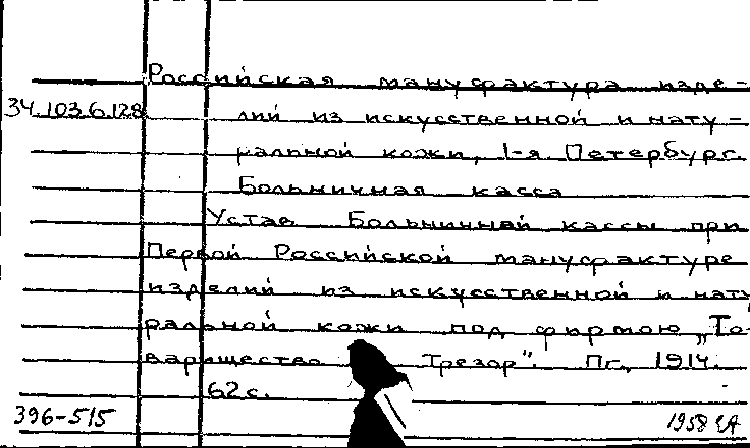 Российская мануфактура изде-
34.103.6.128 лий из искусственной и нату-
ральной кожи, 1-я. Петербург.
Больничная касса
Устав Больничной кассы при
Первой Российской мануфактуре
изделий из искусственной и нату
ральной кожи под фирмою „То-
варищество Трезор". Пг., 1914.
62 с.
396-515 1958